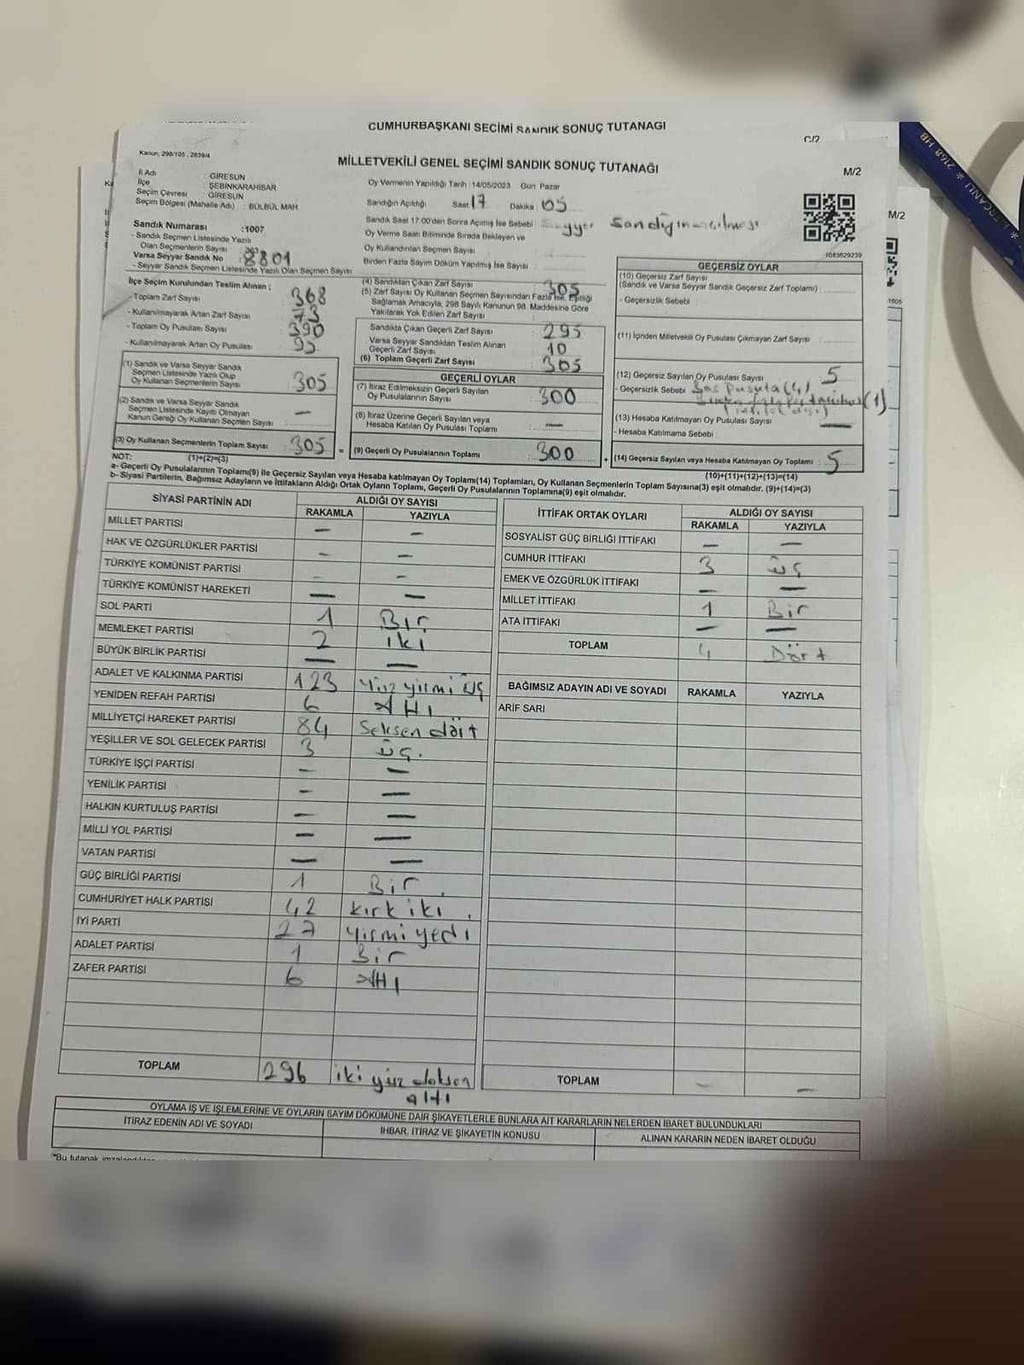 CUMHURBAŞKANI SEÇİMİ SANDIK SONUÇ TUTANAĞI
C/2
Kanun: 298/105 , 2839/4
MİLLETVEKİLİ GENEL SEÇİMİ SANDIK SONUÇ TUTANAĞI
M/2
M/2
İl Adı GİRESUN
İlçe ŞEBİNKARAHİSAR
Seçim Çevresi : GİRESUN
Seçim Bölgesi (Mahalle Adı) : BÜLBÜL MAH
Oy Vermenin Yapıldığı Tarih :14/05/2023 Gün: Pazar
Sandığın Açıldığı Saat 17 Dakika 05
Sandık Saat 17:00'den Sonra Açılmış İse Sebebi Seyyar Sandığın
Oy Verme Saati Bitiminde Sırada Bekleyen ve
Oy Kullandırılan Seçmen Sayısı
Birden Fazla Sayım Döküm Yapılmış İse Sayısı
Sandık Numarası :1007
- Sandık Seçmen Listesinde Yazılı
Olan Seçmenlerin Sayısı
Varsa Seyyar Sandık No 8801
- Seyyar Sandık Seçmen Listesinde Yazılı Olan Seçmen Sayısı
İlçe Seçim Kurulundan Teslim Alınan ;
- Toplam Zarf Sayısı 368
- Kullanılmayarak Artan Zarf Sayısı 73
- Toplam Oy Pusulası Sayısı 390
- Kullanılmayarak Artan Oy Pusulası 95
(1) Sandık ve Varsa Seyyar Sandık
Seçmen Listesinde Yazılı Olup
Oy Kullanan Seçmenlerin Sayısı 305
(2) Sandık ve Varsa Seyyar Sandık
Seçmen Listesinde Kayıtlı Olmayan
Kanun Gereği Oy Kullanan Seçmen Sayısı —
(3) Oy Kullanan Seçmenlerin Toplam Sayısı 305
(1)+(2)=(3)
(4) Sandıktan Çıkan Zarf Sayısı 305
(5) Zarf Sayısı Oy Kullanan Seçmen Sayısından Fazla İse, Eşitliği
Sağlamak Amacıyla, 298 Sayılı Kanunun 98. Maddesine Göre
Yakılarak Yok Edilen Zarf Sayısı
Sandıkta Çıkan Geçerli Zarf Sayısı 295
Varsa Seyyar Sandıktan Teslim Alınan
Geçerli Zarf Sayısı 10
(6) Toplam Geçerli Zarf Sayısı 305
GEÇERLİ OYLAR
(7) İtiraz Edilmeksizin Geçerli Sayılan
Oy Pusulalarının Sayısı 300
(8) İtiraz Üzerine Geçerli Sayılan veya
Hesaba Katılan Oy Pusulası Toplamı —
(9) Geçerli Oy Pusulalarının Toplamı 300
GEÇERSİZ OYLAR
(10) Geçersiz Zarf Sayısı
(Sandık ve Varsa Seyyar Sandık Geçersiz Zarf Toplamı)
- Geçersizlik Sebebi
(11) İçinden Milletvekili Oy Pusulası Çıkmayan Zarf Sayısı
(12) Geçersiz Sayılan Oy Pusulası Sayısı 5
- Geçersizlik Sebebi Boş Pusula (4)
(1)
(13) Hesaba Katılmayan Oy Pusulası Sayısı —
- Hesaba Katılmama Sebebi
(14) Geçersiz Sayılan veya Hesaba Katılmayan Oy Toplamı 5
(10)+(11)+(12)+(13)=(14)
NOT:
a- Geçerli Oy Pusulalarının Toplamı(9) ile Geçersiz Sayılan veya Hesaba katılmayan Oy Toplamı(14) Toplamları, Oy Kullanan Seçmenlerin Toplam Sayısına(3) eşit olmalıdır. (9)+(14)=(3)
b- Siyasi Partilerin, Bağımsız Adayların ve İttifakların Aldığı Ortak Oyların Toplamı, Geçerli Oy Pusulalarının Toplamına(9) eşit olmalıdır.
SİYASİ PARTİNİN ADI ALDIĞI OY SAYISI
RAKAMLA YAZIYLA
MİLLET PARTİSİ — —
HAK VE ÖZGÜRLÜKLER PARTİSİ — —
TÜRKİYE KOMÜNİST PARTİSİ — —
TÜRKİYE KOMÜNİST HAREKETİ — —
SOL PARTİ 1 Bir
MEMLEKET PARTİSİ 2 iki
BÜYÜK BİRLİK PARTİSİ — —
ADALET VE KALKINMA PARTİSİ 123 Yüz yirmi üç
YENİDEN REFAH PARTİSİ 6 Altı
MİLLİYETÇİ HAREKET PARTİSİ 84 Seksen dört
YEŞİLLER VE SOL GELECEK PARTİSİ 3 üç.
TÜRKİYE İŞÇİ PARTİSİ — —
YENİLİK PARTİSİ — —
HALKIN KURTULUŞ PARTİSİ — —
MİLLİ YOL PARTİSİ — —
VATAN PARTİSİ — —
GÜÇ BİRLİĞİ PARTİSİ 1 Bir.
CUMHURİYET HALK PARTİSİ 42 Kırk iki.
İYİ PARTİ 27 Yirmi yedi
ADALET PARTİSİ 1 Bir
ZAFER PARTİSİ 6 Altı
TOPLAM 296 iki yüz doksan
altı
İTTİFAK ORTAK OYLARI ALDIĞI OY SAYISI
RAKAMLA YAZIYLA
SOSYALİST GÜÇ BİRLİĞİ İTTİFAKI — —
CUMHUR İTTİFAKI 3 üç
EMEK VE ÖZGÜRLÜK İTTİFAKI — —
MİLLET İTTİFAKI 1 Bir
ATA İTTİFAKI — —
TOPLAM 4 Dört
BAĞIMSIZ ADAYIN ADI VE SOYADI RAKAMLA YAZIYLA
ARİF SARI
TOPLAM — —
OYLAMA İŞ VE İŞLEMLERİNE VE OYLARIN SAYIM DÖKÜMÜNE DAİR ŞİKAYETLERLE BUNLARA AİT KARARLARIN NELERDEN İBARET BULUNDUKLARI
İTİRAZ EDENİN ADI VE SOYADI İHBAR, İTİRAZ VE ŞİKAYETİN KONUSU ALINAN KARARIN NEDEN İBARET OLDUĞU